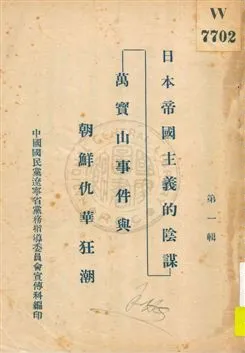 W
7702
日本帝國主義的陰謀
第一輯
萬寶山事件與
朝鮮仇華狂潮
中國國民黨遼寧省黨務指導委員會宣傳科編印